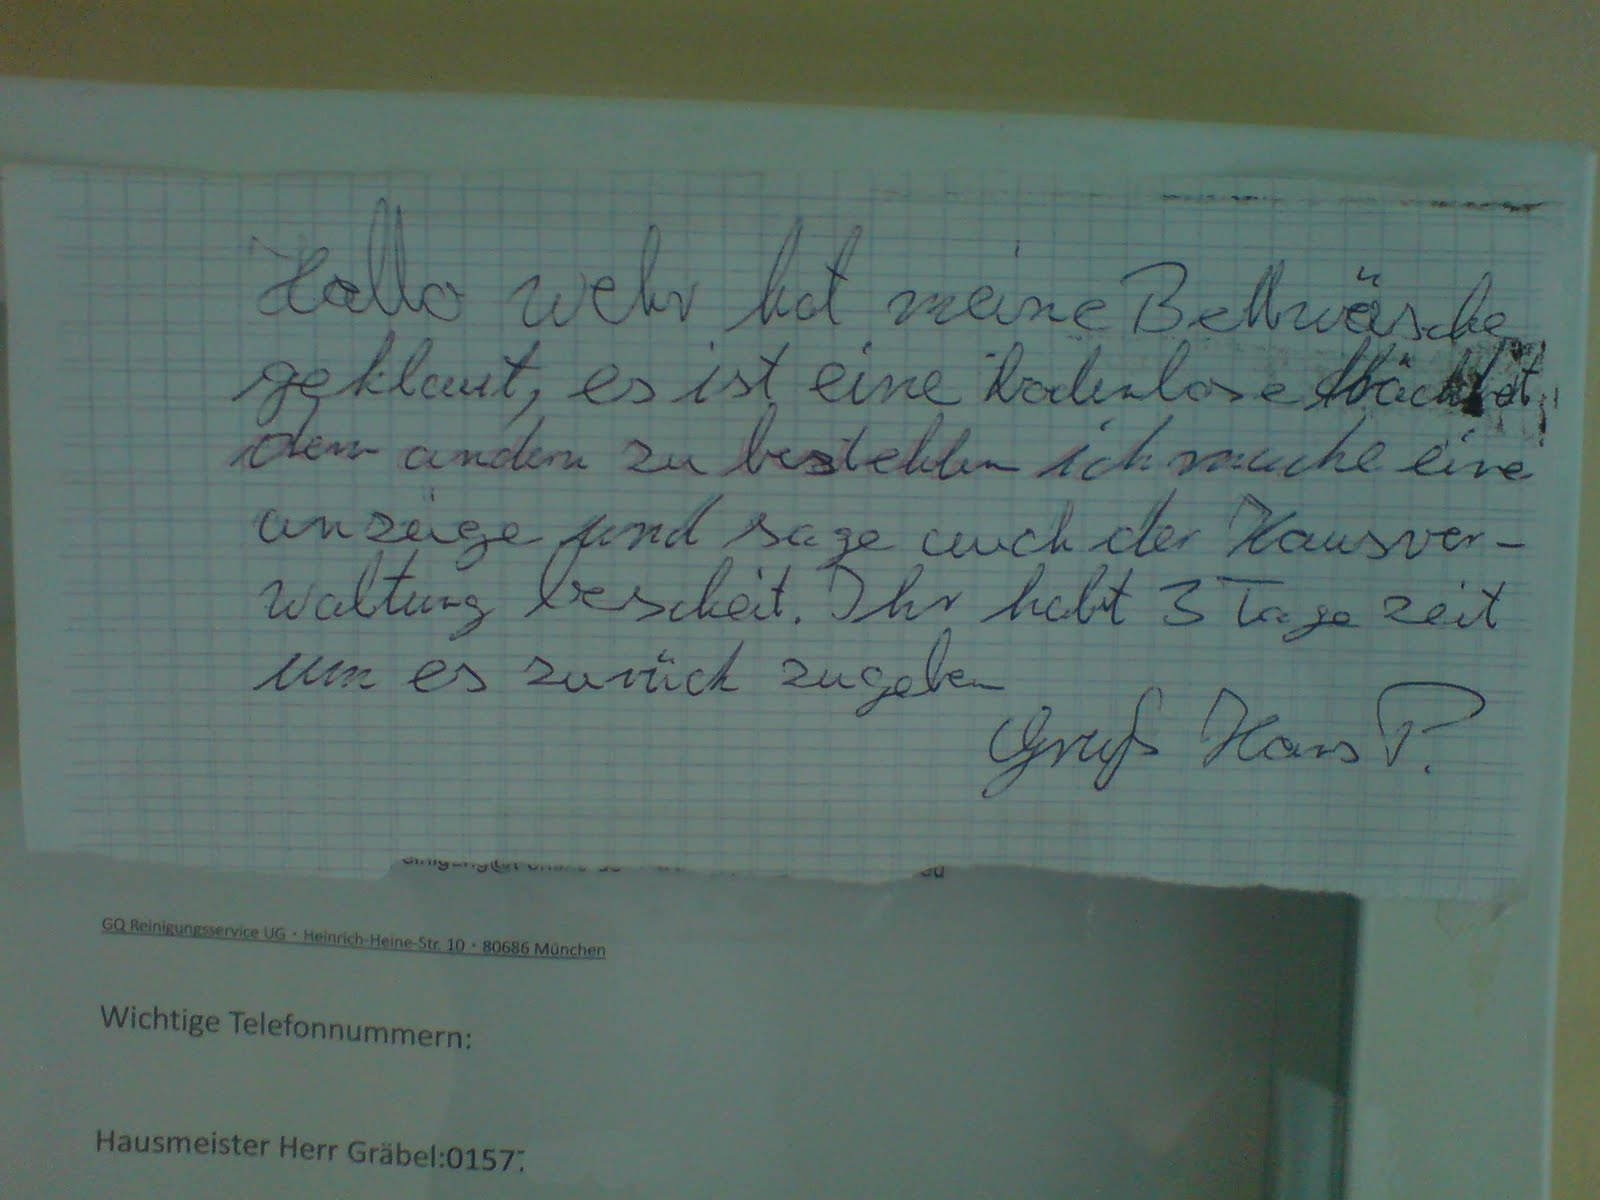 Hallo wehr hat meine Bettwäsche
geklaut, es ist eine bodenlose
den andern zu bestehlen ich mache eine
anzeige und sage auch der Hausver-
waltung bescheit. Ihr habt 3 Tage zeit
um es zurück zugeben
Gruß Hans P.
GQ Reinigungsservice UG · Heinrich-Heine-Str. 10 · 80686 München
Wichtige Telefonnummern:
Hausmeister Herr Gräbel:0157